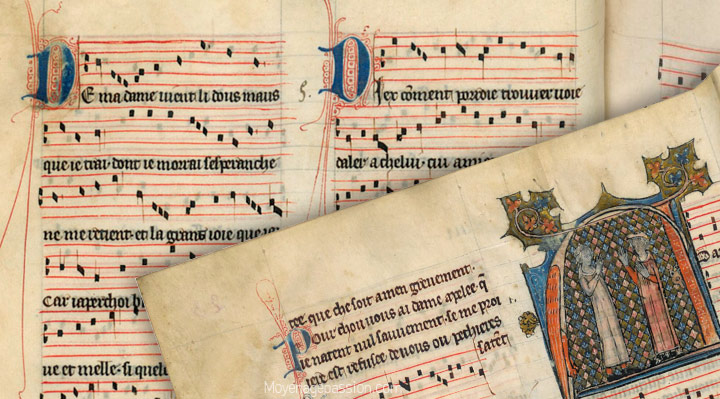 De ma dame vient li dous maus
que ie trai · dont ie morrai sesperanche
ne me retient · et la grans ioie que
Car iaperchoi
ue et melle · si quele
5.
Diex cōment porroie trouver voie
daler a chelui · cui
que che soit a men grevement ·
Pour chou vous ai dame apelee · q̄
ie natent nul sauvement · se me proi
iere est refusee de vous ou pechieres
Moyenagepassion.com